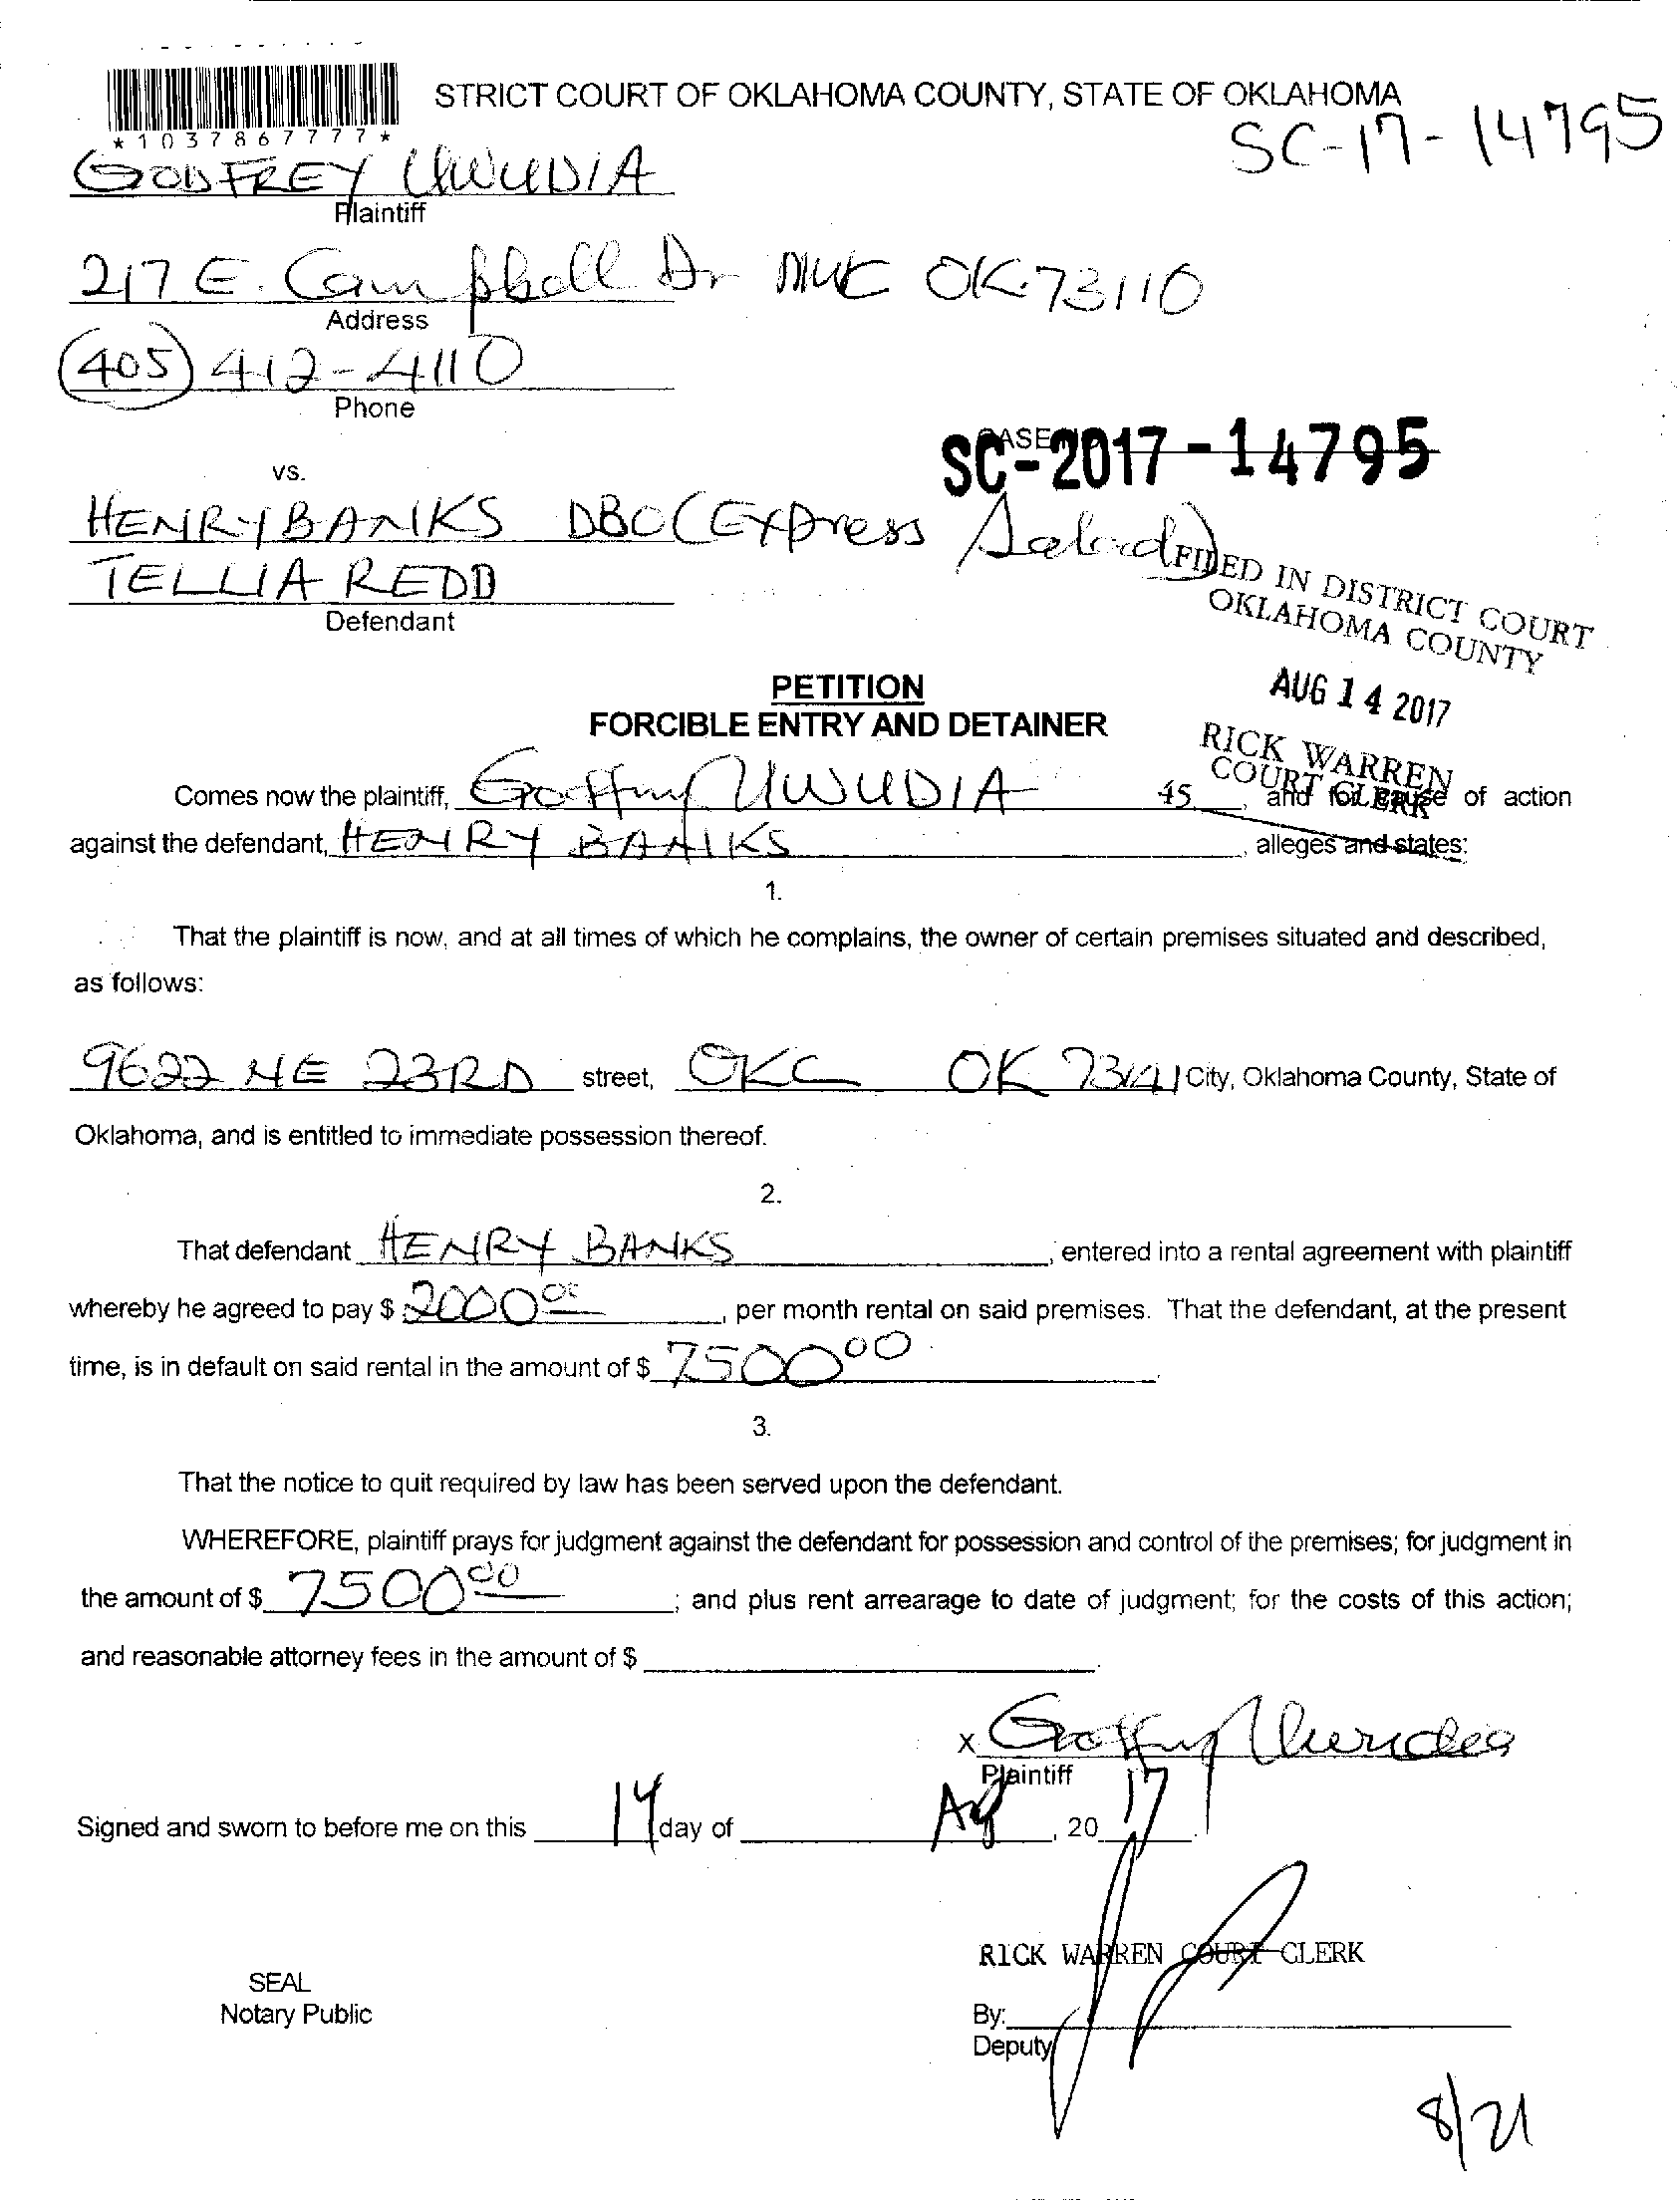 STRICT COURT OF OKLAHOMA COUNTY, STATE OF OKLAHOMA
*1037867777*
SC-17-14795
GODFREY UWUDIA
Plaintiff
217 E. Campbell Dr MWC OK 73110
Address
(405) 412-4110
Phone
SC-2017-14795
vs.
HENRY BANKS DBO (Express
TELLIA REDD
Defendant
FILED IN DISTRICT COURT
OKLAHOMA COUNTY
AUG 14 2017
RICK WARREN
COURT CLERK
PETITION
FORCIBLE ENTRY AND DETAINER
Comes now the plaintiff, Godfrey UWUDIA 45, and for cause of action
against the defendant, HENRY BANKS, alleges and states:
1.
That the plaintiff is now, and at all times of which he complains, the owner of certain premises situated and described,
as follows:
9622 NE 23RD street, OKC OK 73141 City, Oklahoma County, State of
Oklahoma, and is entitled to immediate possession thereof.
2.
That defendant HENRY BANKS, entered into a rental agreement with plaintiff
whereby he agreed to pay $ 2000 00, per month rental on said premises. That the defendant, at the present
time, is in default on said rental in the amount of $ 7500 00.
3.
That the notice to quit required by law has been served upon the defendant.
WHEREFORE, plaintiff prays for judgment against the defendant for possession and control of the premises; for judgment in
the amount of $ 7500 00; and plus rent arrearage to date of judgment; for the costs of this action;
and reasonable attorney fees in the amount of $
x Godfrey Uwudia
Plaintiff
Signed and sworn to before me on this 14 day of Aug, 20 17.
RICK WARREN COURT CLERK
SEAL
Notary Public
By:
Deputy
8/21